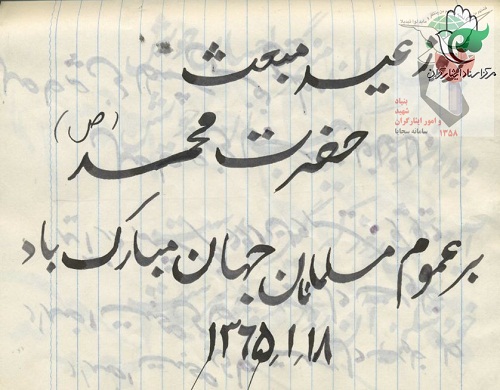 روز عید مبعث
حضرت محمد (ص)
بر عموم مسلمانان جهان مبارک باد
۱۳۶۵,۱,۱۸
مرکز اسناد ایثارگران
بنیاد
شهید
و امور ایثارگران
سامانه سجایا
۱۳۵۸